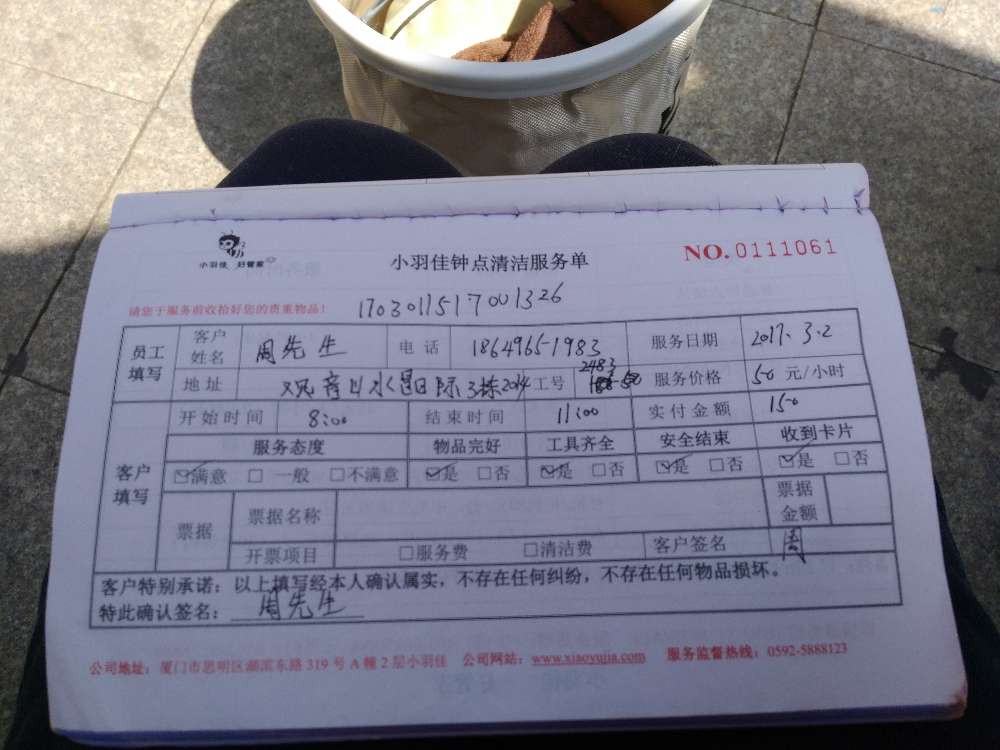 小羽佳 好管家
小羽佳钟点清洁服务单
NO. 0111061
请您于服务前收拾好您的贵重物品!
1703011517001326
员工填写 客户姓名 周先生 电话 18649651983 服务日期 2017.3.2
地址 观音山水晶国际3栋2014 工号 2483 服务价格 50 元/小时
客户填写 开始时间 8:00 结束时间 11:00 实付金额 150
服务态度 物品完好 工具齐全 安全结束 收到卡片
☑满意 □一般 □不满意 ☑是 □否 ☑是 □否 ☑是 □否 ☑是 □否
票据 票据名称 票据金额
开票项目 □服务费 □清洁费 客户签名 周
客户特别承诺:以上填写经本人确认属实,不存在任何纠纷,不存在任何物品损坏。
特此确认签名: 周先生
公司地址:厦门市思明区湖滨东路 319 号 A 幢 2 层小羽佳 公司网站:www.xiaoyujia.com 服务监督热线:0592-5888123